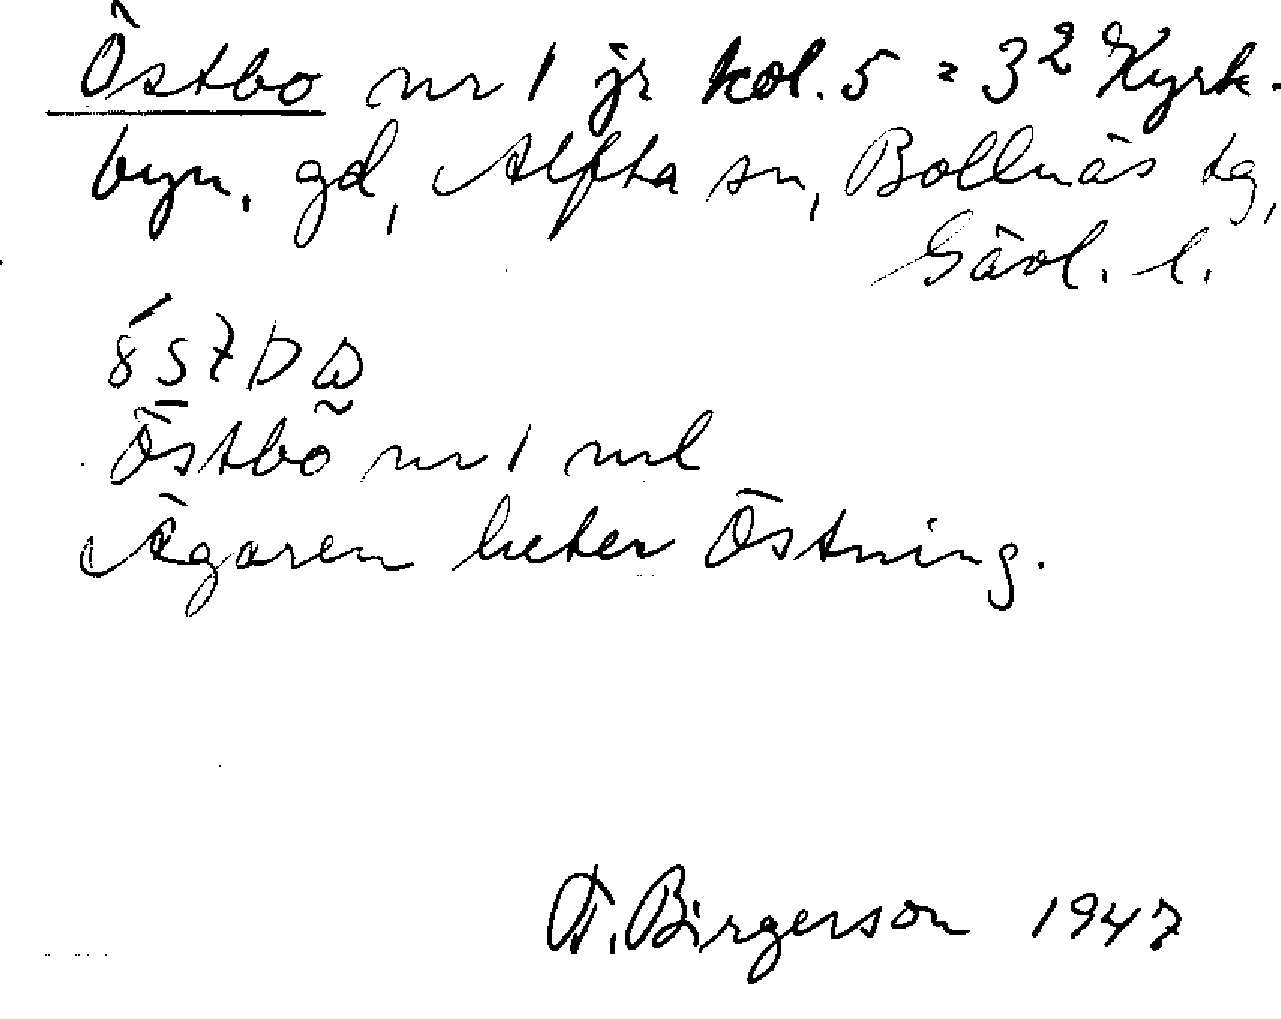 Östbo nr 1 jr kol. 5 = 3² Kyrk.
byn. gd, Alfta sn, Bollnäs tg,
Gävl. l.
Östbo nr 1 ml
Ägaren heter Östning.
F. Birgerson 1947